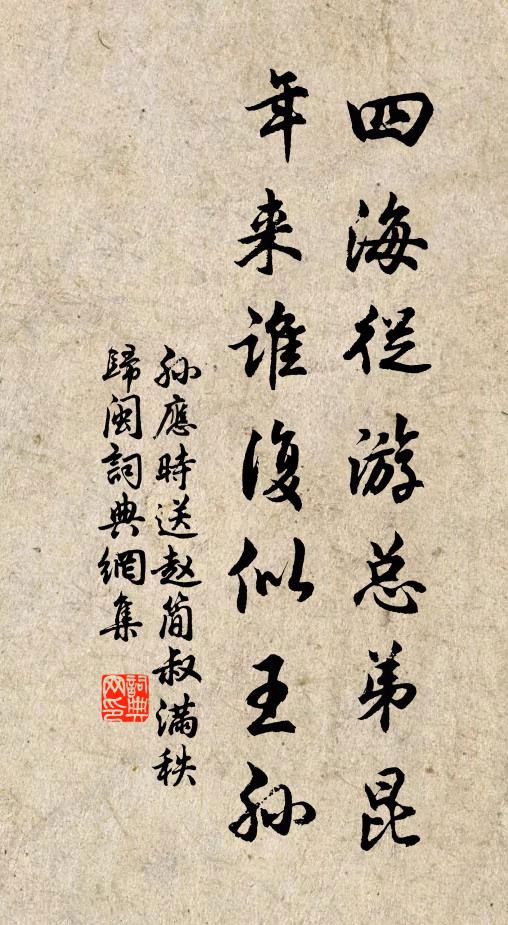 四海從游总弟昆
年来谁復似王孙
孙應時送赵简叔满秩
歸闽詞典網集
詞典网印